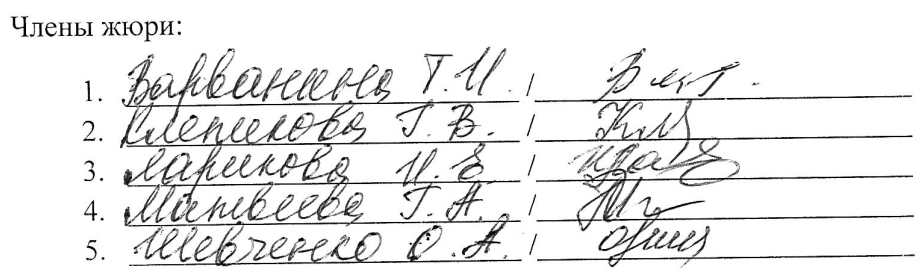 Члены жюри:
1. Варванина Т.И. /
2. Клепикова Г.В. /
3. Ларикова И.Е. /
4. Матвеева Г.А. /
5. Шевченко О.А. /